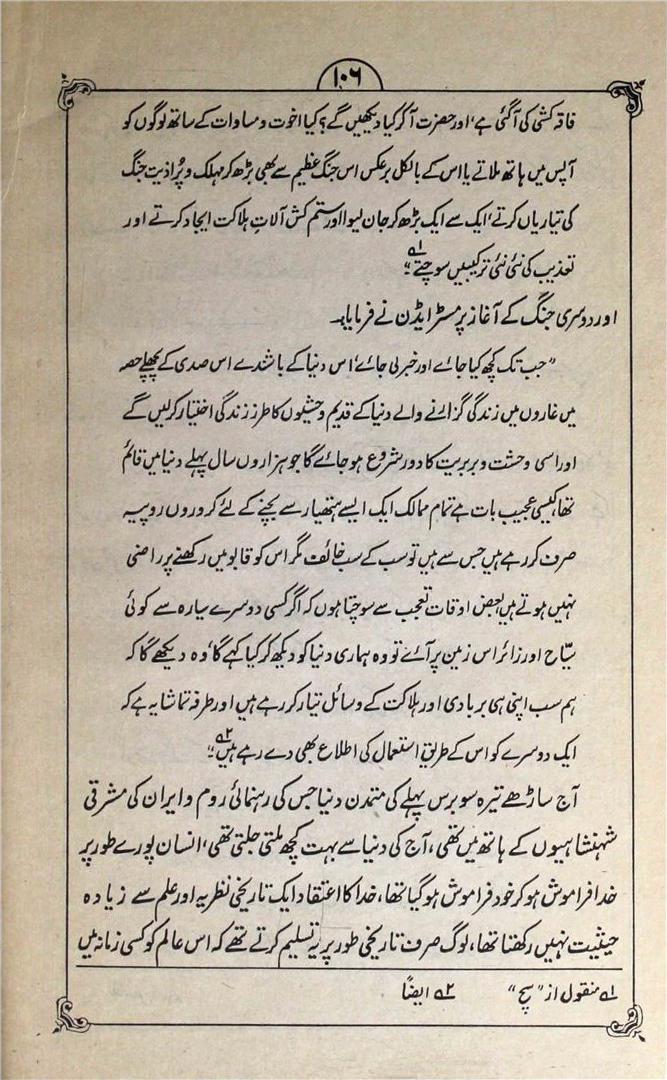 ۱۰۶
فاقہ کشی کی آگئی ہے، اور حضرت آکر کیا دیکھیں گے؟ کیا اخوت و مساوات کے ساتھ لوگوں کو
آپس میں ہاتھ ملاتے یا اس کے بالکل برعکس اس جنگ عظیم سے بھی بڑھ کر مہلک و پُر اذیت جنگ
کی تیاریاں کرتے، ایک سے ایک بڑھ کر جان لیوا اور ستم کش آلاتِ ہلاکت ایجاد کرتے اور
تعذیب کی نئی نئی ترکیبیں سوچتے۱؎"
اور دوسری جنگ کے آغاز پر مسٹر ایڈن نے فرمایا:۔
"جب تک کچھ کیا جائے اور خبر لی جائے، اس دنیا کے باشندے اس صدی کے پچھلے حصہ
میں غاروں میں زندگی گزارنے والے دنیا کے قدیم وحشیوں کا طرز زندگی اختیار کر لیں گے
اور اسی وحشت و بربریت کا دور شروع ہو جائے گا جو ہزاروں سال پہلے دنیا میں قائم
تھا، کیسی عجیب بات ہے تمام ممالک ایک ایسے ہتھیار سے بچنے کے لئے کروروں روپیہ
صرف کر رہے ہیں جس سے ہیں تو سب کے سب خائف مگر اس کو قابو میں رکھنے پر راضی
نہیں ہوتے ہیں بعض اوقات تعجب سے سوچتا ہوں کہ اگر کسی دوسرے سیارہ سے کوئی
سیّاح اور زائر اس زمین پر آئے تو وہ ہماری دنیا کو دیکھ کر کیا کہے گا، وہ دیکھے گا کہ
ہم سب اپنی ہی بربادی اور ہلاکت کے وسائل تیار کر رہے ہیں اور طرفہ تماشا یہ ہے کہ
ایک دوسرے کو اس کے طریقِ استعمال کی اطلاع بھی دے رہے ہیں۲؎"
آج ساڑھے تیرہ سو برس پہلے کی متمدن دنیا جس کی رہنمائی روم و ایران کی مشرقی
شہنشاہیوں کے ہاتھ میں تھی، آج کی دنیا سے بہت کچھ ملتی جلتی تھی، انسان پورے طور پر
خدا فراموش ہو کر خود فراموش ہو گیا تھا، خدا کا اعتقاد ایک تاریخی نظریہ اور علم سے زیادہ
حیثیت نہیں رکھتا تھا، لوگ صرف تاریخی طور پر یہ تسلیم کرتے تھے کہ اس عالم کو کسی زمانہ میں
۱؎ منقول از "سچ" ۲؎ ایضاً